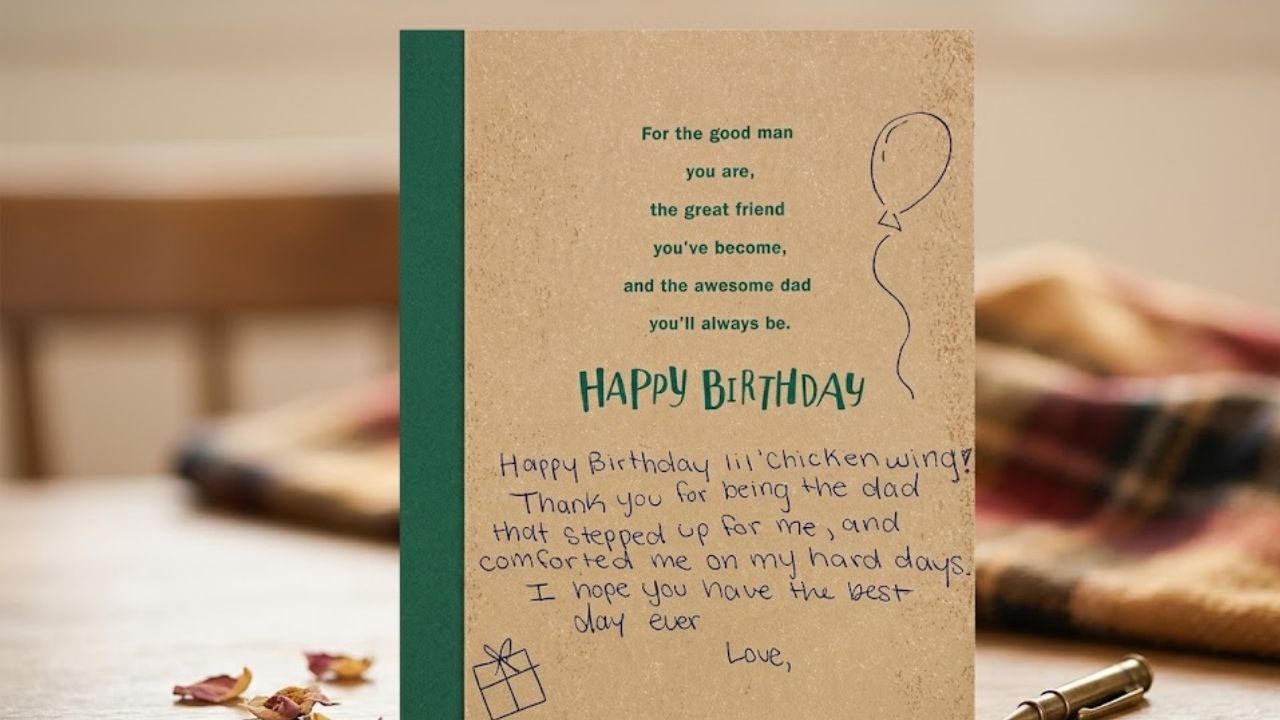 For the good man
you are,
the great friend
you've become,
and the awesome dad
you'll always be.
HAPPY BIRTHDAY
Happy Birthday lil' chicken wing!
Thank you for being the dad
that stepped up for me, and
comforted me on my hard days.
I hope you have the best
day ever
Love,